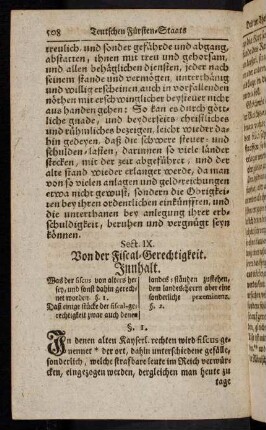 108 Teutschen Fürsten-Staats
treulich, und sonder gefährde und abgang,
abstatten, ihnen mit treu und gehorsam,
und allen behäglichen diensten, jeder nach
seinem stande und vermögen, unterthänig
und willig erscheinen auch in vorfallenden
nöthen mit erschwinglicher beysteuer nicht
aus handen gehen: So kan es durch gött-
liche gnade, und beyderseits christliches
und rühmliches bezeigen, leicht wieder da-
hin gedeyen, daß die schwere steuer- und
schulden-lasten, darunnen so viele länder
stecken, mit der zeit abgeführet, und der
alte stand wieder erlanget werde, da man
von so vielen anlagen und geld-reichungen
etwa nicht gewust, sondern die Obrigkei-
ten bey ihren ordentlichen einkünfften, und
die unterthanen bey anlegung ihrer erb-
schuldigkeit, beruhen und vergnügt seyn
können.
Sect. IX.
Von der Fiscal-Gerechtigkeit.
Innhalt.
Was der fiscus von alters her
sey, und sonst dahin gerech-
net worden §. 1.
Daß einige stücke der fiscal-ge-
rechtigkeit zwar auch denen
landes-ständen zustehen,
dem landesherrn aber eine
sonderliche
§. 2.
§. 1.
In denen alten Kayserl. rechten wird fiscus ge-
nennet * der ort, dahin unterschiedene gefälle,
sonderlich, welche strafbare leute im Reich verwür-
cken, eingezogen werden, dergleichen man heute zu
tage